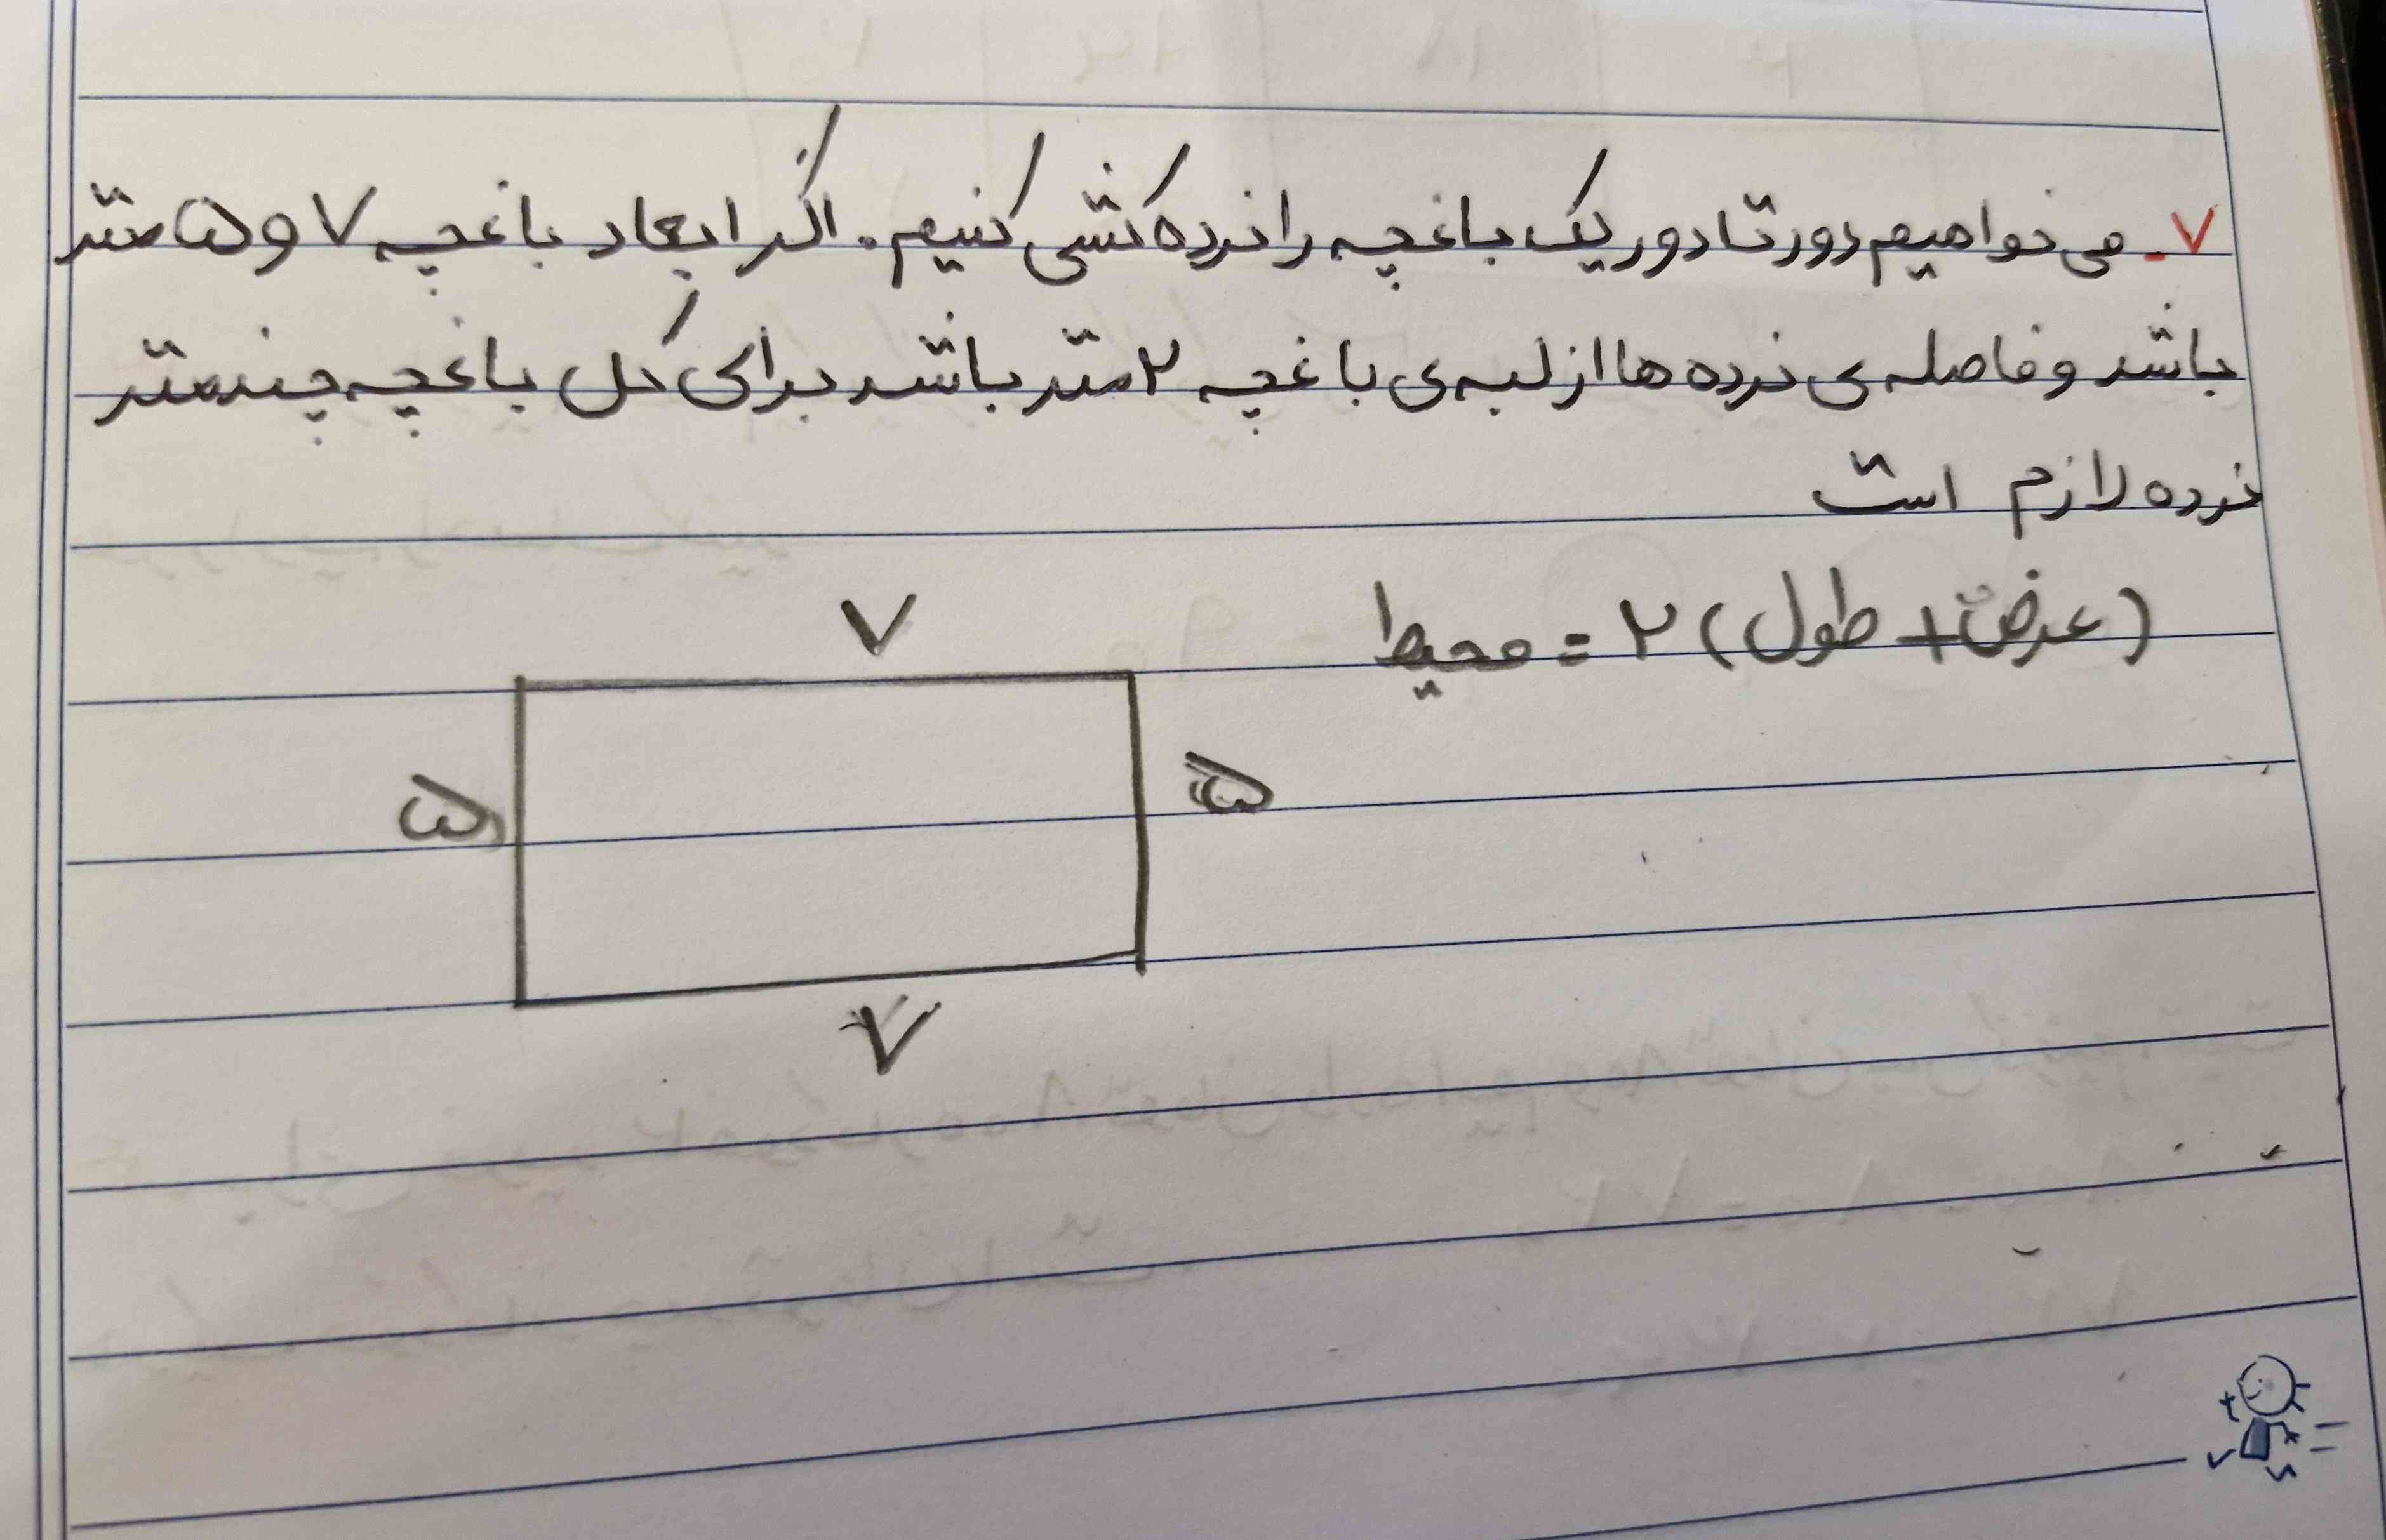 ۷- می خواهیم دور تا دور یک باغچه را نرده کشی کنیم. اگر ابعاد باغچه ۷ و ۵ متر
باشد و فاصله ی نرده ها از لبه ی باغچه ۲ متر باشد برای کل باغچه چند متر
نرده لازم است
محیط = ۲ (طول + عرض)
۷
۵
۵
۷